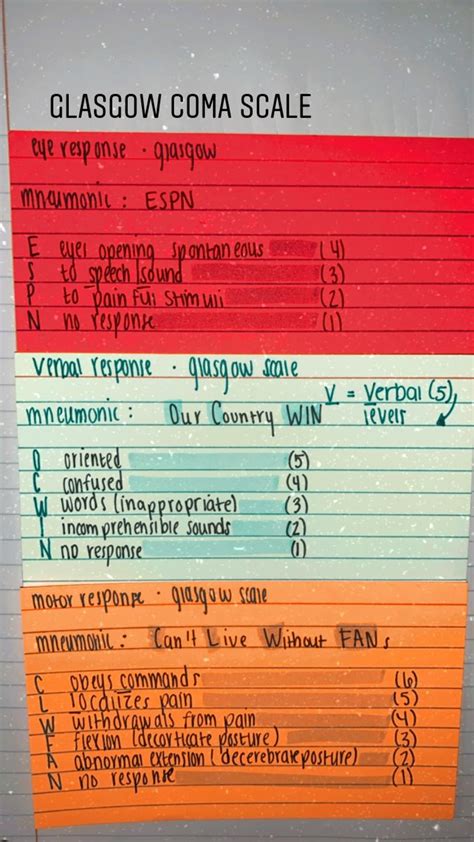 GLASGOW COMA SCALE
eye response · glasgow
mneumonic : ESPN
E eyes opening spontaneous (4)
S to speech/sound (3)
P to painful stimuli (2)
N no response (1)
verbal response · glasgow scale
V = Verbal (5) levels
mneumonic : Our Country WIN
O oriented (5)
C confused (4)
W words (inappropriate) (3)
I incomprehensible sounds (2)
N no response (1)
motor response · glasgow scale
mneumonic : Can't Live Without FANs
C obeys commands (6)
L localizes pain (5)
W withdrawals from pain (4)
F flexion (decorticate posture) (3)
A abnormal extension (decerebrate posture) (2)
N no response (1)